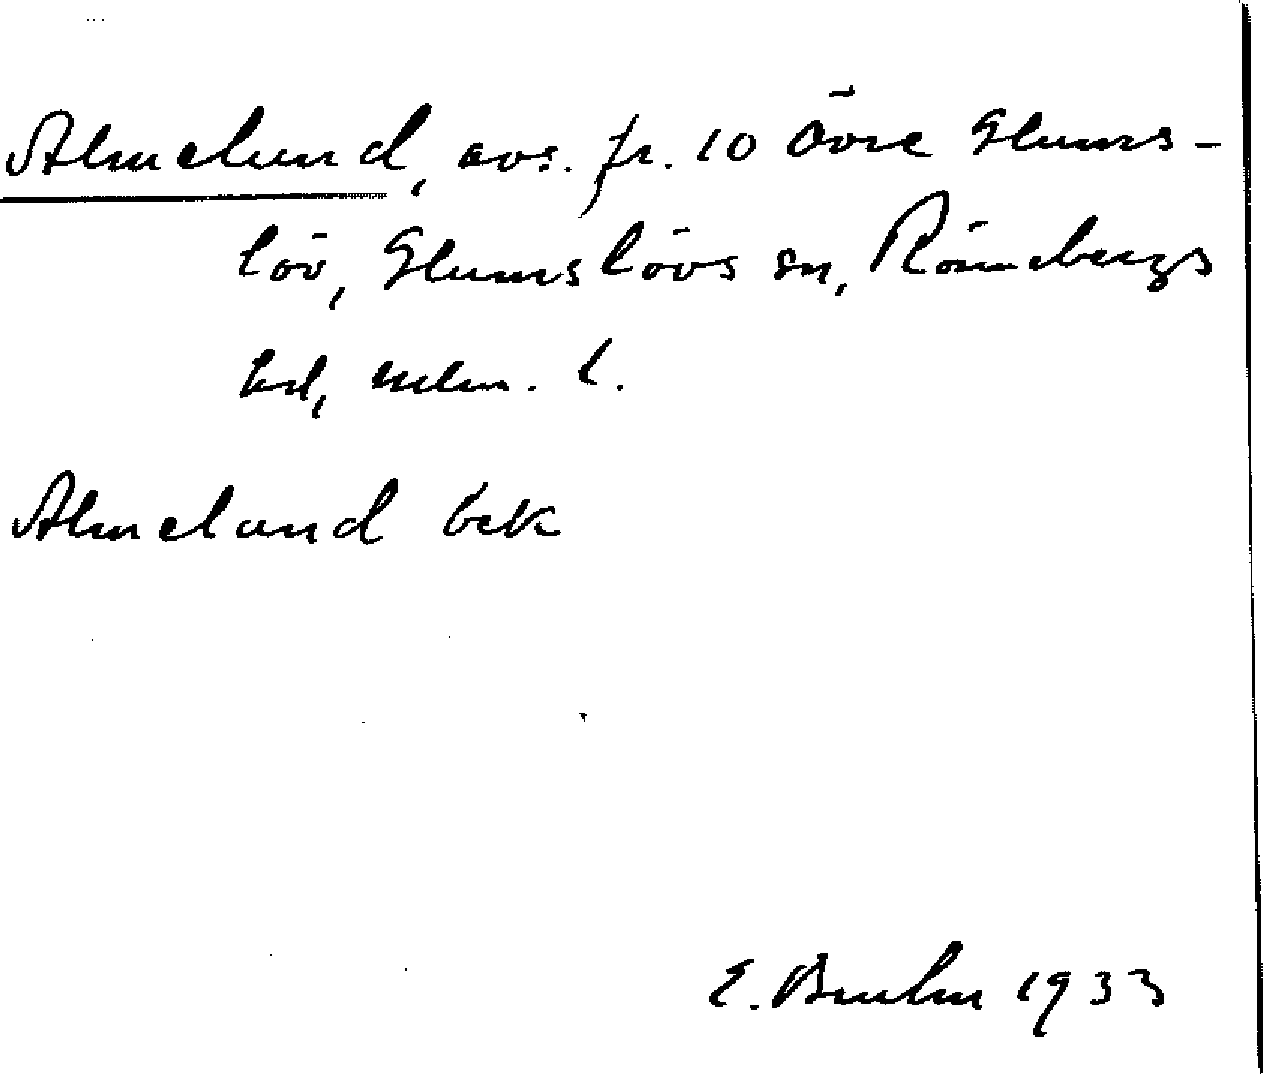 Almelund, avs. fr. 10 Övre Glums-
löv, Glumslövs sn, Rönnebergs
hd, Malm. l.
Almeland bek
E. Bruhn 1933